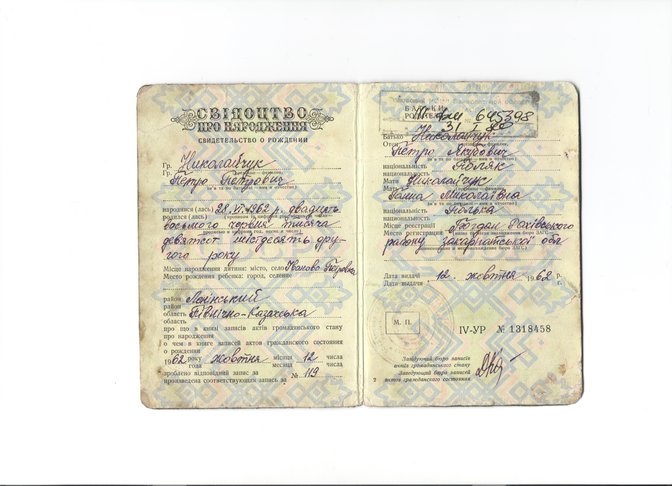 СВІДОЦТВО
ПРО НАРОДЖЕННЯ
СВИДЕТЕЛЬСТВО О РОЖДЕНИИ
Гр. Николайчук
Гр.
Петро Петрович
народився (лась) 28. VI. 1962 р. двадцять
родился (лась)
восьмого червня тисяча
девятсот шістдесять дру-
гого року
Місце народження дитини: місто, село Іваново-Петровка
Место рождения ребенка: город, селение
район Ленінський
район
область Північно-Казахська
область
про що в книзі записів актів громадянського стану
про народження
о чем в книге записей актов гражданского состояния
о рождении
1962 року жовтня місяця 12 числа
года месяца числа
зроблено відповідний запис за № 119
произведена соответствующая запись за
БАТЬКИ
РОДИТЕЛИ
645398
Батько Николайчук
Отец
Петро Якубович
національність Поляк
национальность
Мати Николайчук
Мать
Ганна Миколаївна
національність Полька
национальность
Місце реєстрації Богдан Рахівського
Место регистрации
району закарпатської обл
Дата видачі 12. жовтня 1962 р.
Дата выдачи г.
М. П.
IV-УР № 1318458
Завідуючий бюро записів
актів громадянського стану
Заведующий бюро записей
актов гражданского состояния